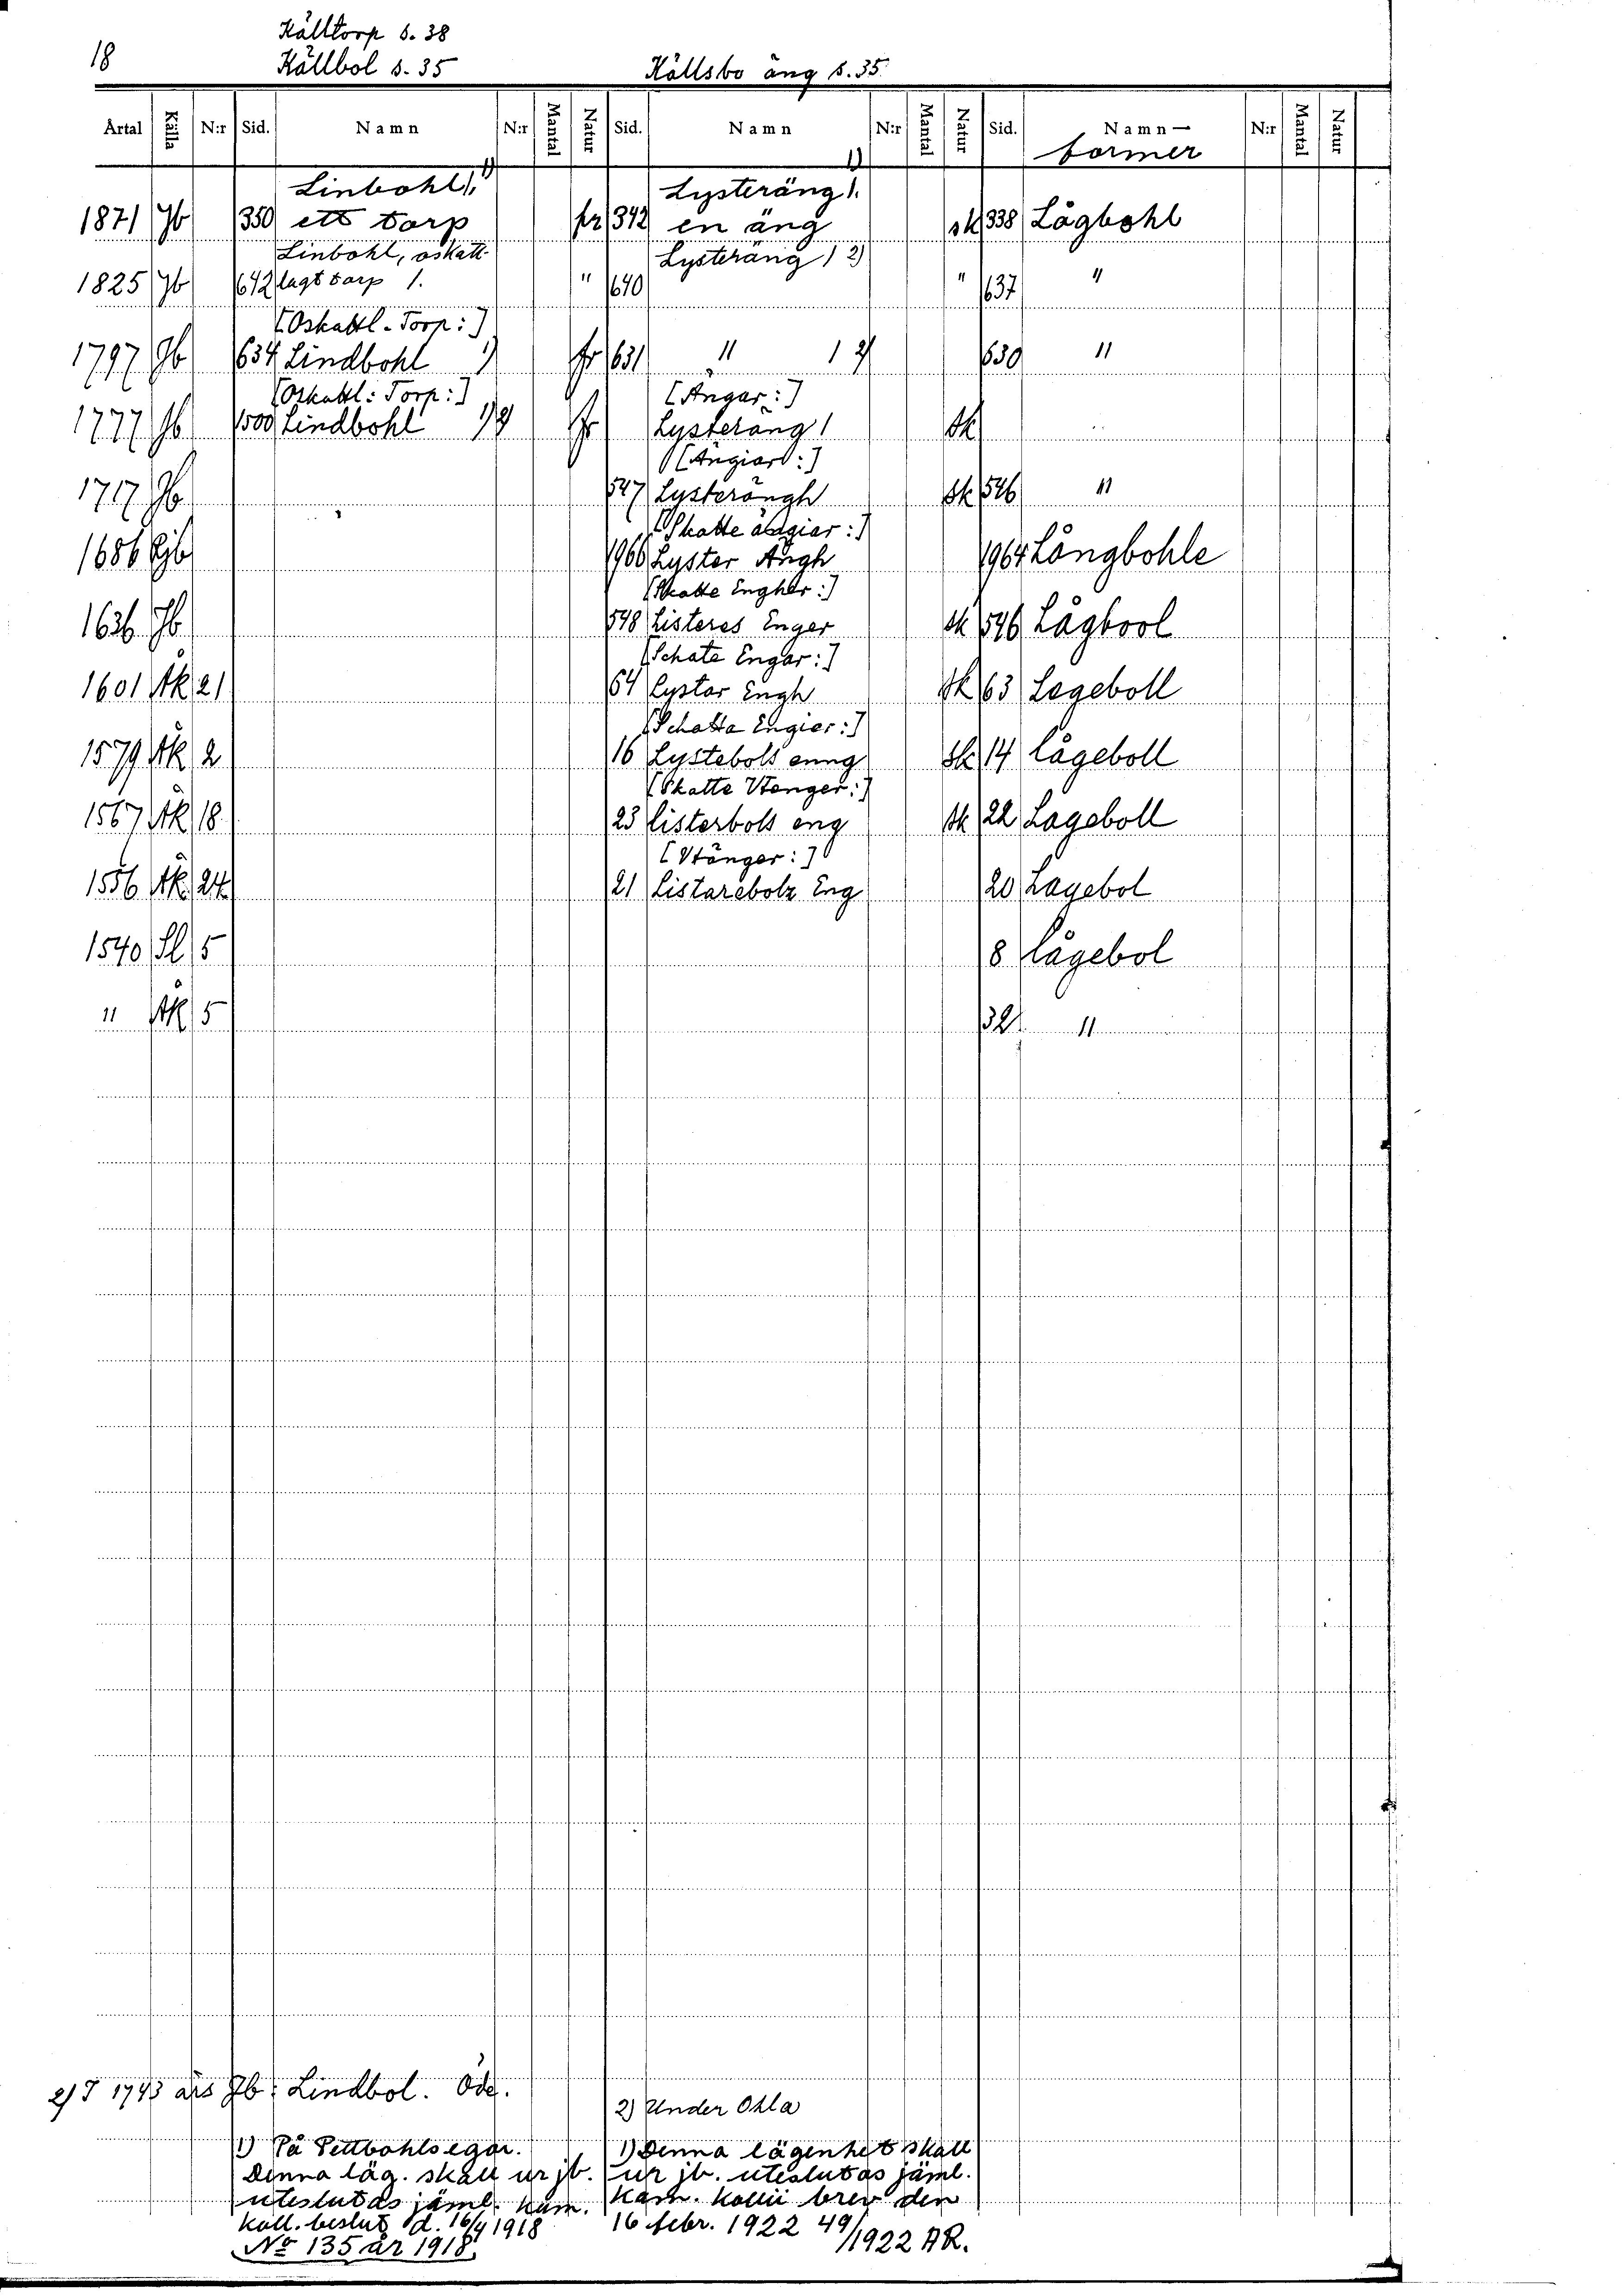 18
Källtorp s. 38
Källbol s. 35
Källsbo äng s. 35.
Årtal Källa N:r Sid. Namn N:r Mantal Natur Sid. Namn N:r Mantal Natur Sid. Namn— N:r Mantal Natur
former
Linbohl 1. 1) Lysteräng 1. 1)
1871 Jb 350 ett torp fr 342 en äng sk 338 Lågbohl
Linbohl, oskatt- Lysteräng 1 2)
1825 Jb 642 lagt torp 1. " 640 " 637 "
[Oskattl. Torp:]
1797 Jb 634 Lindbohl 1) fr 631 " 1 2) 630 "
[Oskattl: Torp:] [Ängar:]
1777 Jb 500 Lindbohl 1) 2) fr Lysteräng 1 Sk
[Ängiar:]
1717 Jb 547 Lysterängh Sk 546 "
[Skatte ängiar:]
1686 Jb 1966 Lyster Ängh 1964 Långbohle
[Skatte Engher:]
1626 Jb 548 Listeres Enger sk 546 Lågbool
[Schate Engar:]
1601 ÄK 21 64 Lystar Engh Sk 63 Legeboll
[Schatta Engier:]
1579 ÄK 2 16 Lystebols enng Sk 14 lågeboll
[Skatte Vtenger:]
1567 ÄK 18 23 listerbols eng Sk 22 Lageboll
[Vtänger:]
1556 ÄK 24 21 Listarebolz Eng 20 Lagebol
1540 Sl 5 8 Lågebol
" ÄK 5 32 "
2) I 1743 års Jb: Lindbol. Öde.
2) Under Ohla
1) På Pettbohls egor.
Denna läg. skall ur jb.
uteslutas jäml. kam.
koll. beslut d. 16/4 1918
No 135 år 1918.
1) Denna lägenhet skall
ur jb. uteslutas jäml.
Kam. kollii brev den
16 febr. 1922 49/1922 AR.